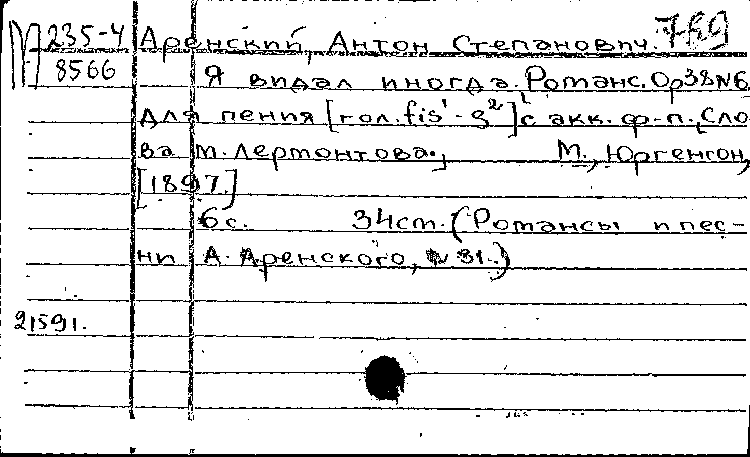 М 235-4 Аренский, Антон Степанович. 789
8566 Я видал иногда. Романс. Ор38№6
для пения [гол. fis¹-g²] с акк. ф-п. [Сло
ва М. Лермонтова.] М., Юргенсон,
[1897.]
6с. 34см. (Романсы и пес-
ни А. Аренского, № 31.)
21591.